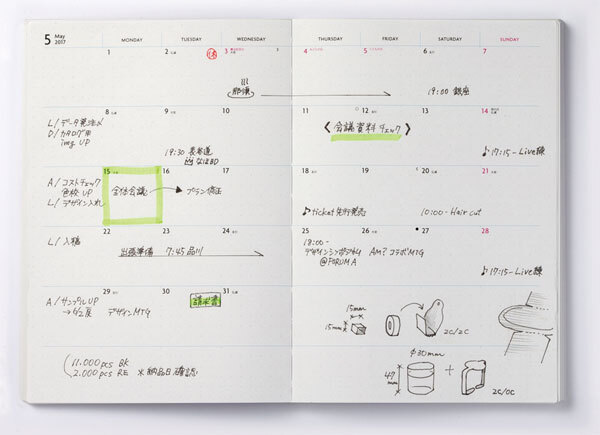 5 May
2017
MONDAY TUESDAY WEDNESDAY THURSDAY FRIDAY SATURDAY SUNDAY
1 2 3 4 5 6 7
那須
19:00 銀座
8 9 10 11 12 13 14
L/データ発注〆
D/カタログ用
img UP
19:30 表参道
なほBD
〈会議資料チェック〉
♪17:15-Live練
15 16 17 18 19 20 21
A/コストチェック
色校UP
L/デザイン入れ
全体会議 プラン修正
♪ticket先行発売
10:00-Hair cut
22 23 24 25 26 27 28
L/入稿
出張準備 7:45 品川
18:00-
デザインシンポジウム
@FORUM A
Am? コラボMTG
♪17:15-Live練
29 30 31
A/サンプルUP
デザインMTG
請求書
15mm
15mm
2C/2C
11.000pcs BK
2.000pcs RE ※納品日確認
φ30mm
47
mm
+
2C/0C